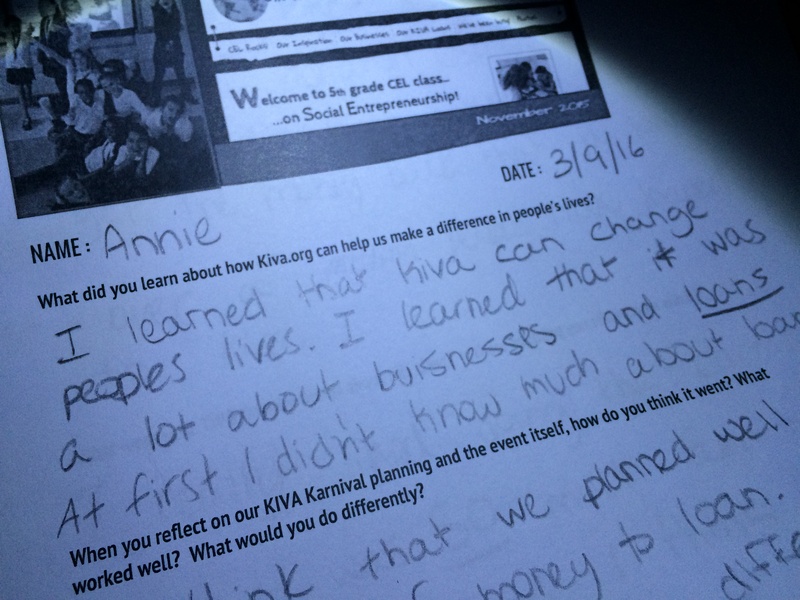 CEL Rocks Our Inspiration Our Businesses Our KIVA Loans We've been
Welcome to 5th grade CEL class...
...on Social Entrepreneurship!
November 2015
DATE: 3/9/16
NAME: Annie
What did you learn about how Kiva.org can help us make a difference in people's lives?
I learned that Kiva can change
peoples lives. I learned that it was
a lot about buisnesses and loans
At first I didn't know much about
When you reflect on our KIVA Karnival planning and the event itself, how do you think it went? What
worked well? What would you do differently?
that we planned well
money to loan.